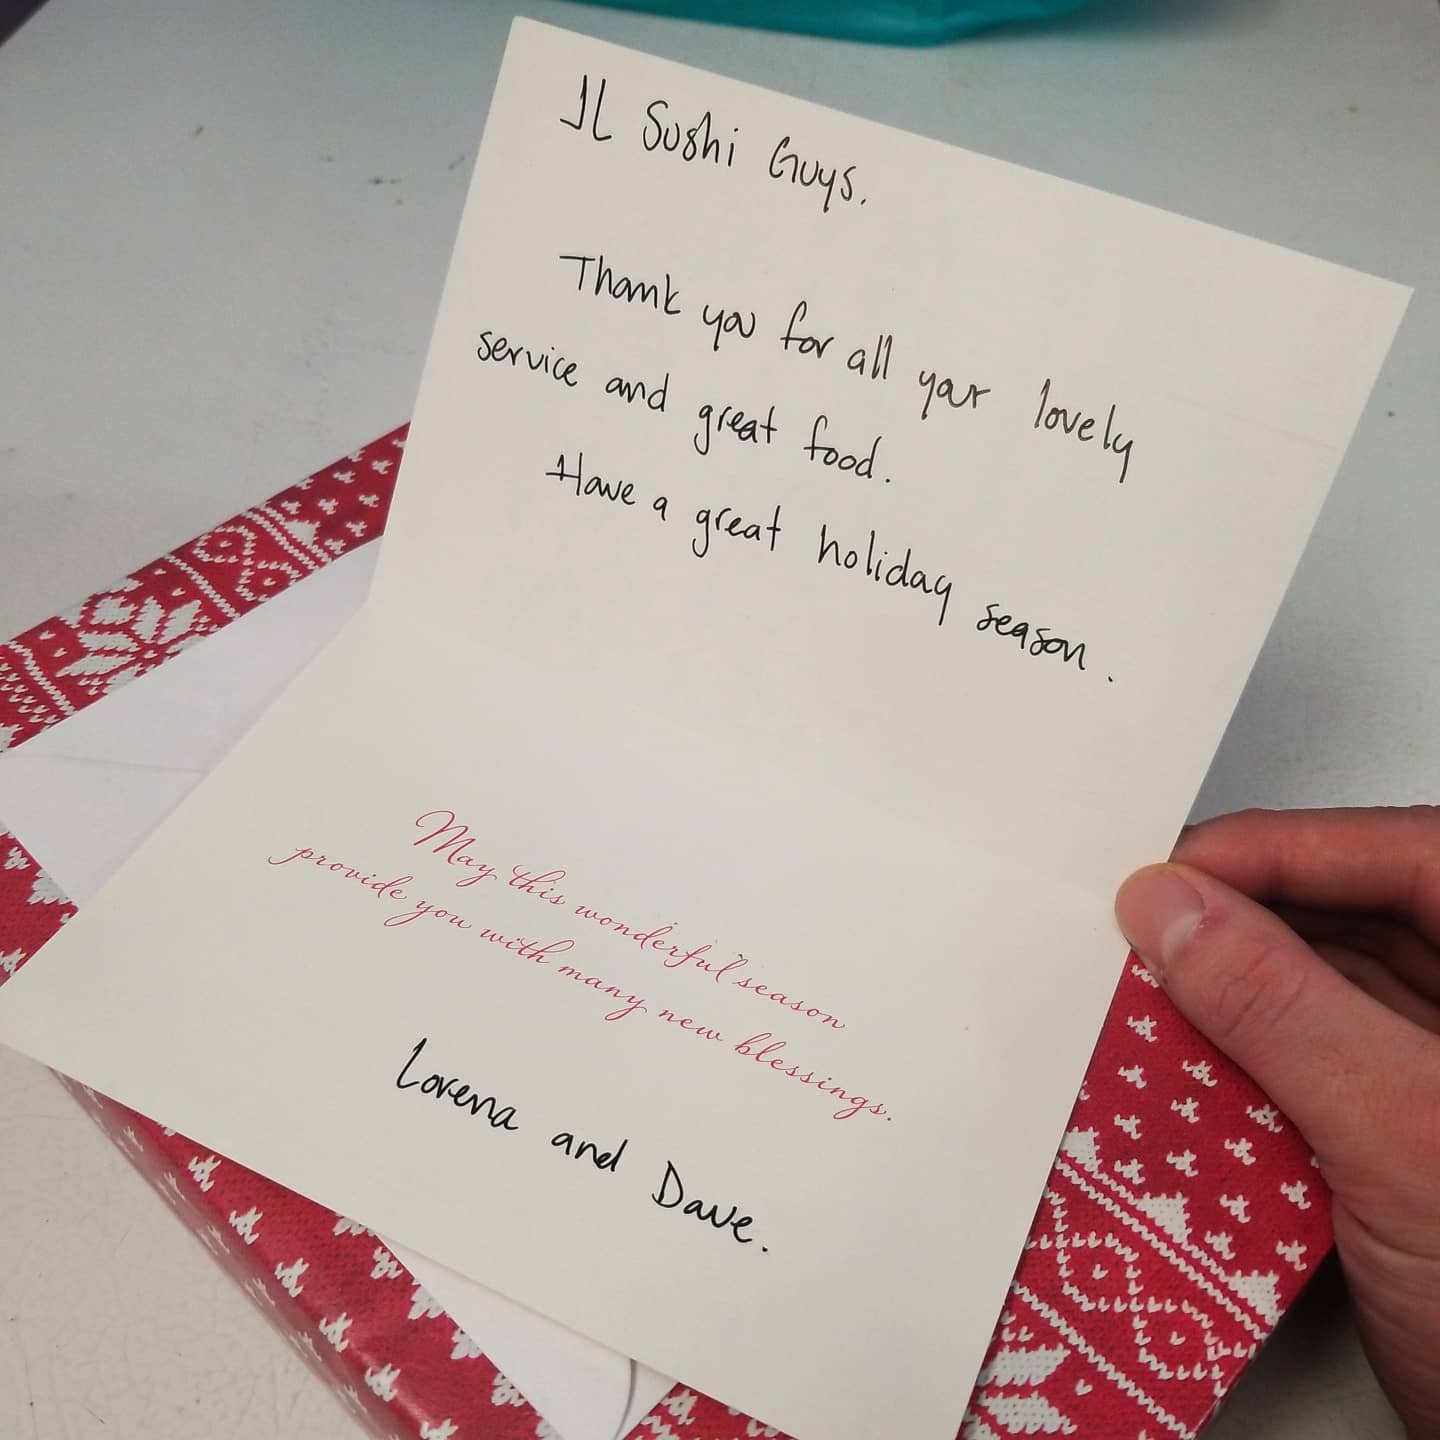 JL Sushi Guys.
Thank you for all your lovely
service and great food.
Have a great holiday season.
May this wonderful season
provide you with many new blessings.
Lorena and Dave.